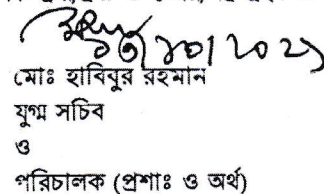 ১৩/১০/২০২১
মোঃ হাবিবুর রহমান
যুগ্ম সচিব
ও
পরিচালক (প্রশাঃ ও অর্থ)